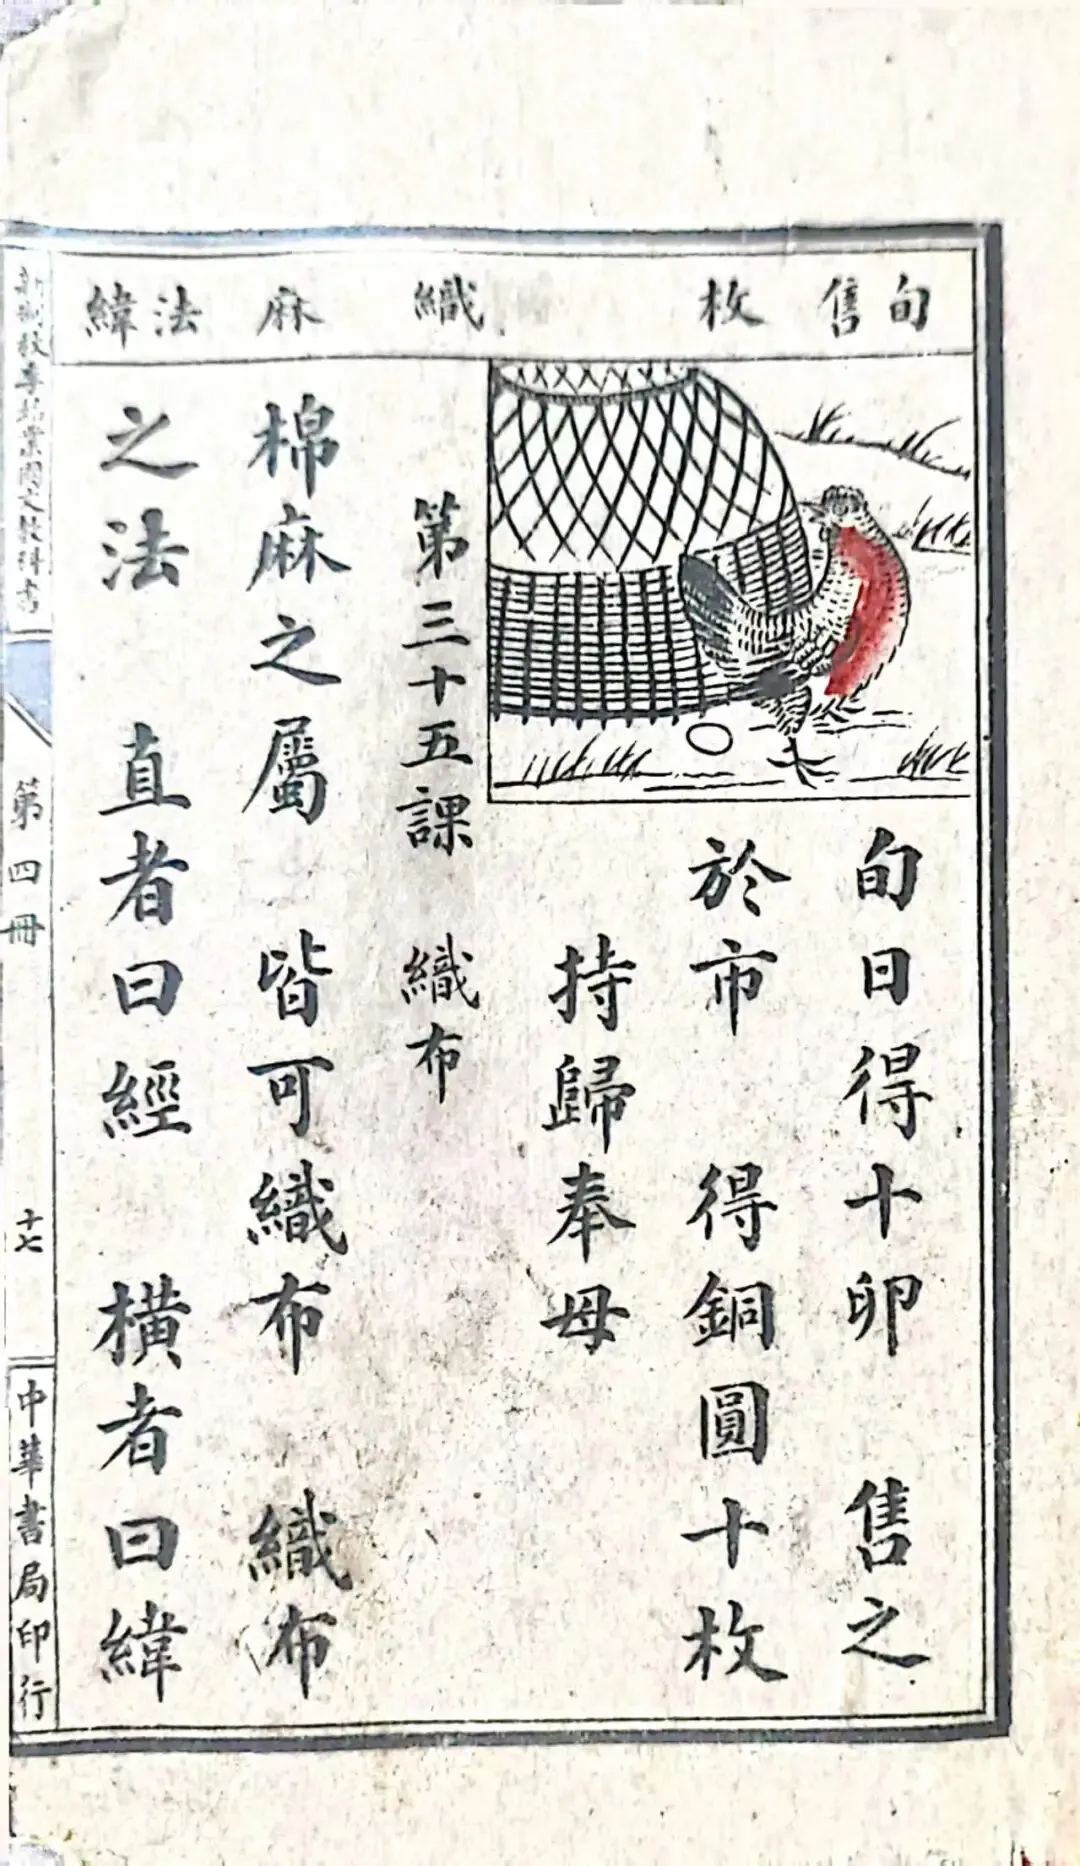 旬售
枚
織
麻
法緯
旬日得十卵　售之
於市　得銅圓十枚
持歸奉母
第三十五課　織布
棉麻之屬　皆可織布　織布
之法　直者曰經　橫者曰緯
教季始業國文教科書
第四冊
十七
中華書局印行